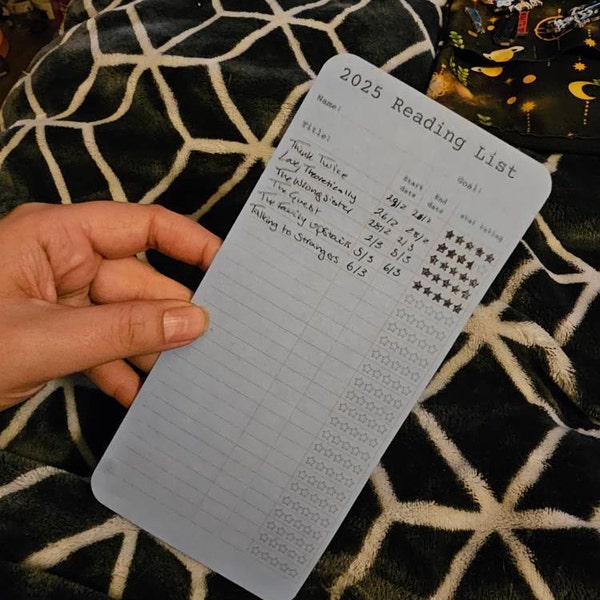 2025 Reading List
Name: Goal:
Title: Start date End date star rating
Think Twice 28/2
Love, Theoretically 26/2 28/2
The Wrong Sister 28/2 2/3
The Guest 2/3 5/3
The Family Upstairs 5/3 6/3
Talking to Strangers 6/3